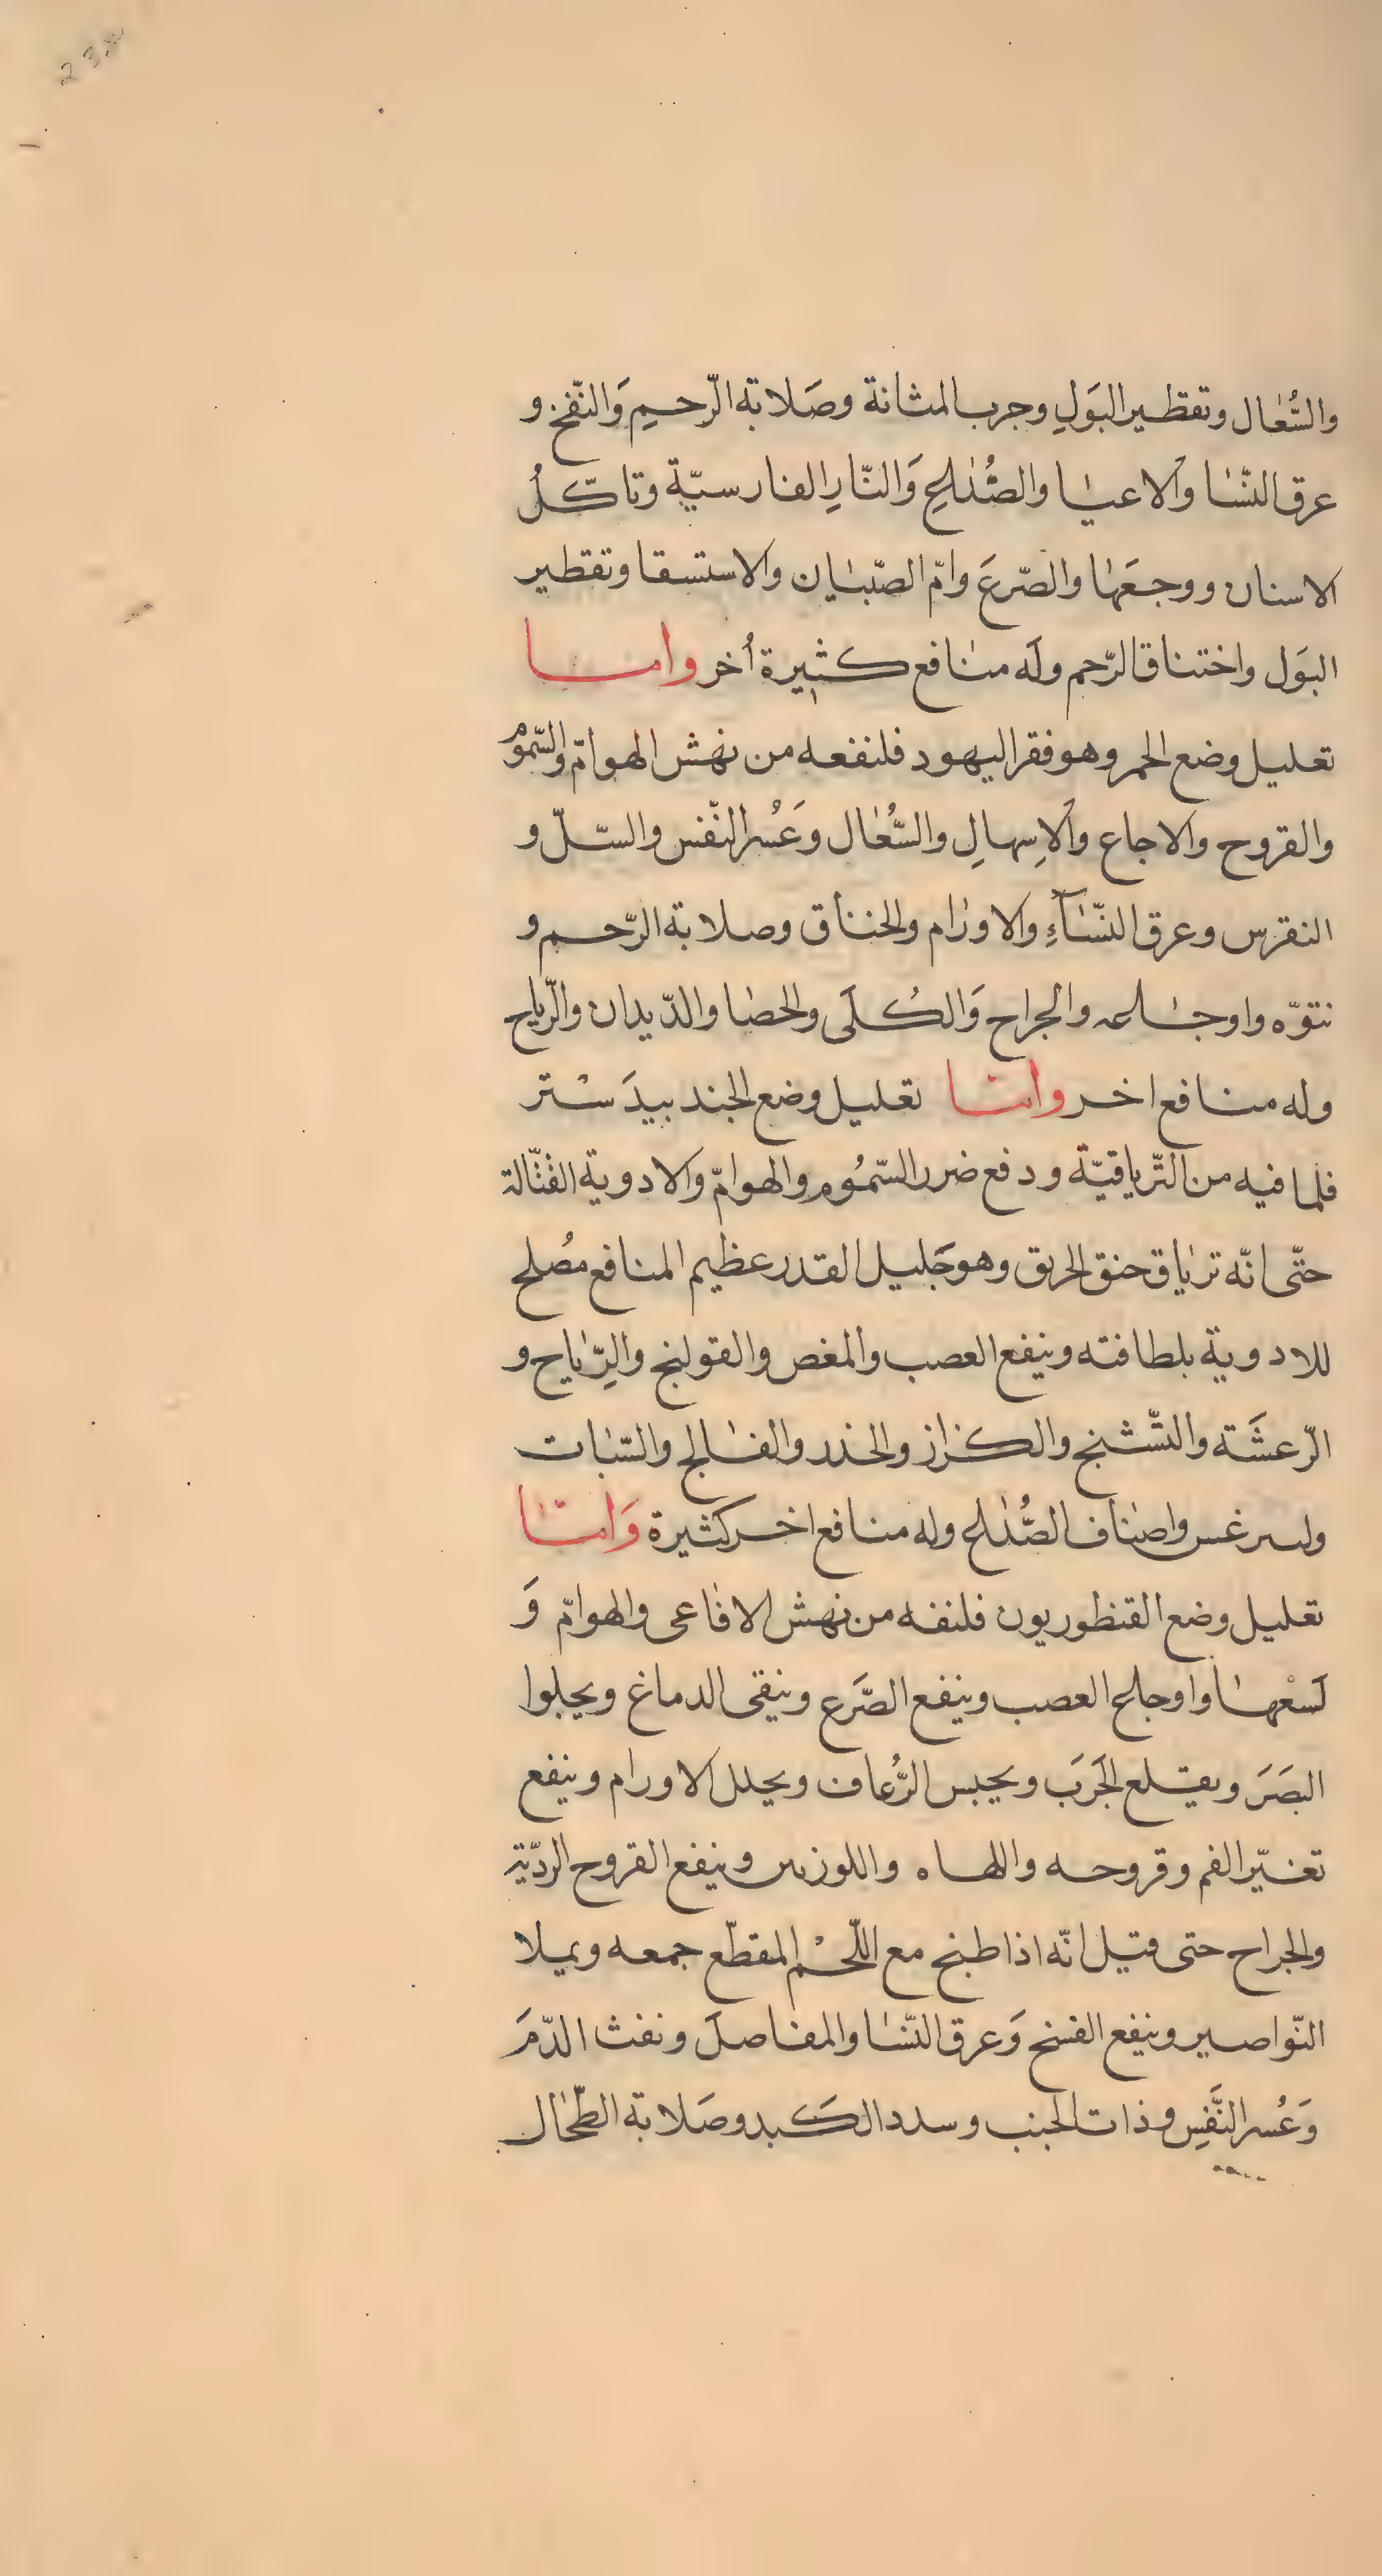 23
والسُّعال وتقطير البَولِ وجرب المثانة وصَلابة الرّحيمِ وَالنّفخ و
عرق النّسا والاعيا والصُّداعِ وَالنّارِ الفارسيّة وتاكّلُ
الاسنان ووجعَها والصّرعَ وامّ الصّبيان والاستسقا وتقطير
البَول واختناق الرّحم ولَه منافع كثيرة أُخر واما
تعليل وضع الحمر وهو فقر اليهود فلنفعه من نهش الهوامّ والسّموم
والقروح والاجاع والاِسهالِ والسُّعال وَعُسر النّفس والسّلّ و
النقرس وعرق النّسآءِ والاورام والخناق وصلابة الرّحم و
نتوّه واوجاعه والجراح وَالكُلَى والحصا والدّيدان والرّياح
وله منافع اخر وامّا تعليل وضع الجند بيدَ سْتر
فلما فيه من التّرياقيّة ودفع ضرر السّمُوم والهوامّ والادوية القتّالة
حتّى انّه ترياق حنق الحربق وهو جَليل القدر عظيم المنافع مُصلح
للادوية بلطافته وينفع العصب والمغص والقولنج والرِّياح و
الرّعشَة والتّشنج والكزاز والخدر والفالج والسّبات
وليرغس واصناف الصُّداع وله منافع اخر كثيرة وَامّا
تعليل وضع القنظوريون فلنفه من نهش الافاعى والهوامّ وَ
لَسْعها واوجاع العصب وينفع الصَّرع وينقى الدماغ ويجلوا
البصَرَ ويقلع الجَرَبَ ويحبس الرُّعاف ويحلل الاورام وينفع
تغيّر الفم وقروحه واللهاه واللوزين وينفع القروح الرديّة
والجراح حتى قيل انّه اذا طبخ مع اللّحْم المقطّع جمعه ويملا
النّواصير وينفع الفسخ وَعرق النّسا والمفاصلَ ونفث الدّمَ
وَعُسر النَّفَسِ وذات الجنب وسدد الكَبد وصَلابة الطّحال